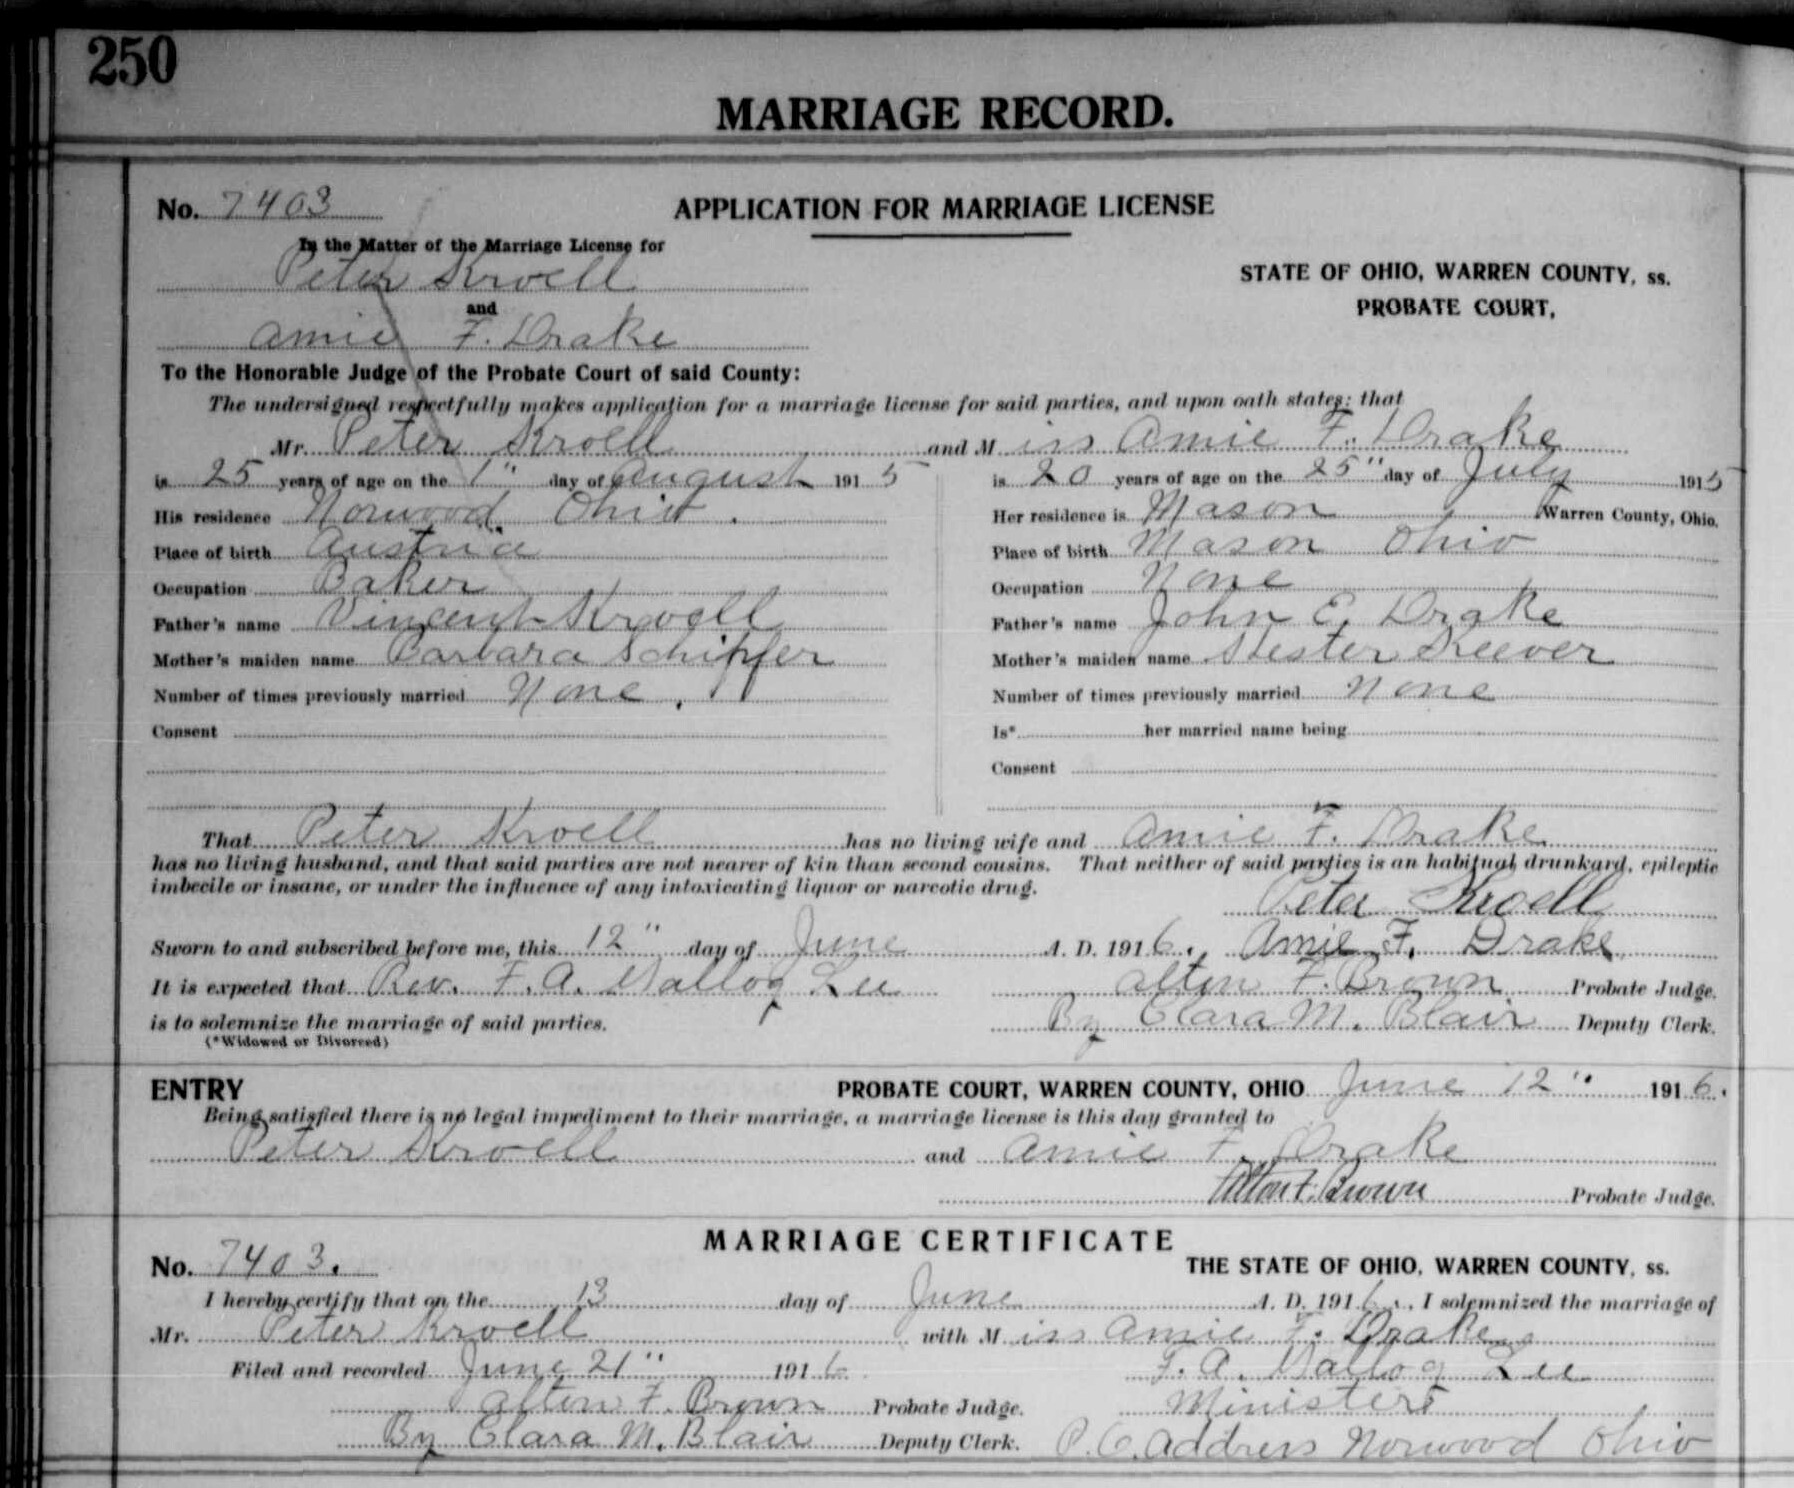 250
MARRIAGE RECORD.
No. 7403 APPLICATION FOR MARRIAGE LICENSE
In the Matter of the Marriage License for
Peter Kroell
STATE OF OHIO, WARREN COUNTY, ss.
and
PROBATE COURT,
Amie F. Drake
To the Honorable Judge of the Probate Court of said County:
The undersigned respectfully makes application for a marriage license for said parties, and upon oath states; that
Mr. Peter Kroell and Miss Amie F. Drake
is 25 years of age on the 1" day of August 1915 is 20 years of age on the 25" day of July 1915
His residence Norwood, Ohio. Her residence is Mason Warren County, Ohio.
Place of birth Austria Place of birth Mason Ohio
Occupation Baker Occupation None
Father's name Vincent Kroell Father's name John E. Drake
Mother's maiden name Barbara Schipfer Mother's maiden name Hester Keever
Number of times previously married None. Number of times previously married None
Consent Is* her married name being
Consent
That Peter Kroell has no living wife and Amie F. Drake
has no living husband, and that said parties are not nearer of kin than second cousins. That neither of said parties is an habitual drunkard, epileptic
imbecile or insane, or under the influence of any intoxicating liquor or narcotic drug.
Peter Kroell
Sworn to and subscribed before me, this 12" day of June A. D. 1916. Amie F. Drake
It is expected that Rev. F. A. Lee Alton F. Brown Probate Judge.
is to solemnize the marriage of said parties. By Clara M. Blair Deputy Clerk.
(*Widowed or Divorced)
ENTRY PROBATE COURT, WARREN COUNTY, OHIO June 12" 1916.
Being satisfied there is no legal impediment to their marriage, a marriage license is this day granted to
Peter Kroell and Amie F. Drake
Alton F. Brown Probate Judge.
MARRIAGE CERTIFICATE
No. 7403. THE STATE OF OHIO, WARREN COUNTY, ss.
I hereby certify that on the 13 day of June A. D. 1916., I solemnized the marriage of
Mr. Peter Kroell with Miss Amie F. Drake
Filed and recorded June 21" 1916 F. A. Lee
Alton F. Brown Probate Judge. Minister
By Clara M. Blair Deputy Clerk. P.O. Address Norwood Ohio